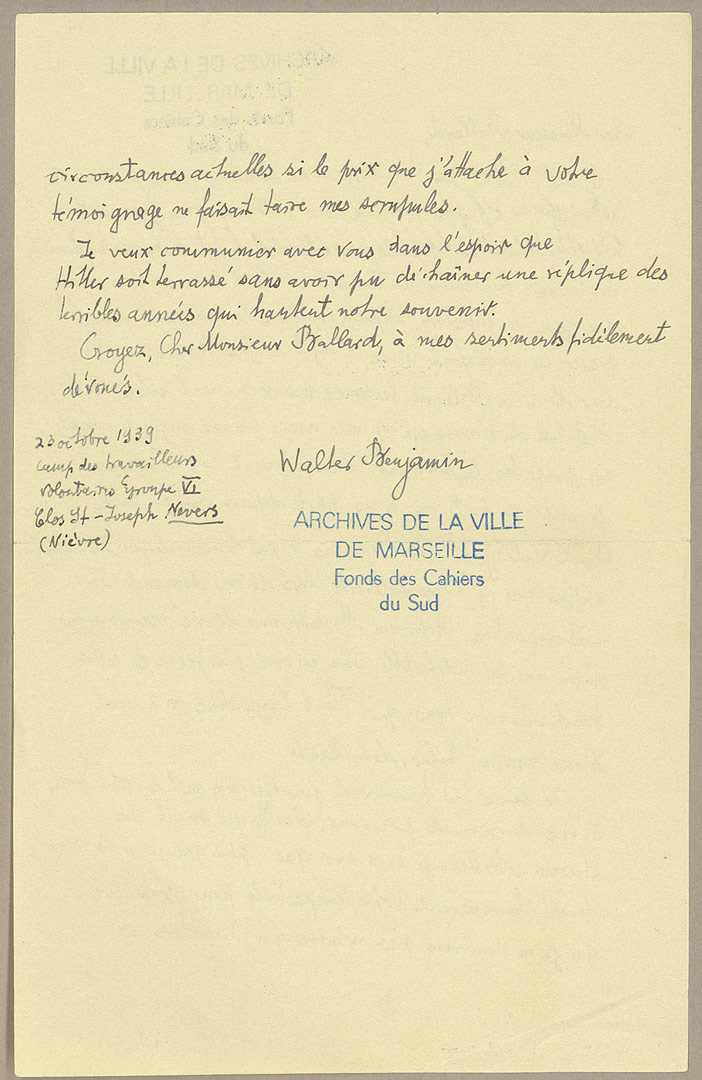 circonstances actuelles si le prix que j'attache à votre
témoignage ne faisait taire mes scrupules.
Je veux communier avec vous dans l'espoir que
Hitler soit terrassé sans avoir pu déchaîner une réplique des
terribles années qui hantent notre souvenir.
Croyez, Cher Monsieur Ballard, à mes sentiments fidèlement
dévoués.
23 octobre 1939
Camp des travailleurs
volontaires Groupe VI
Clos St-Joseph Nevers
(Nièvre)
Walter Benjamin
ARCHIVES DE LA VILLE
DE MARSEILLE
Fonds des Cahiers
du Sud